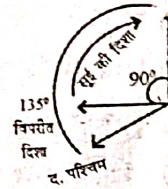 सूई की दिशा
90°
135°
विपरीत
दिशा
द. पश्चिम